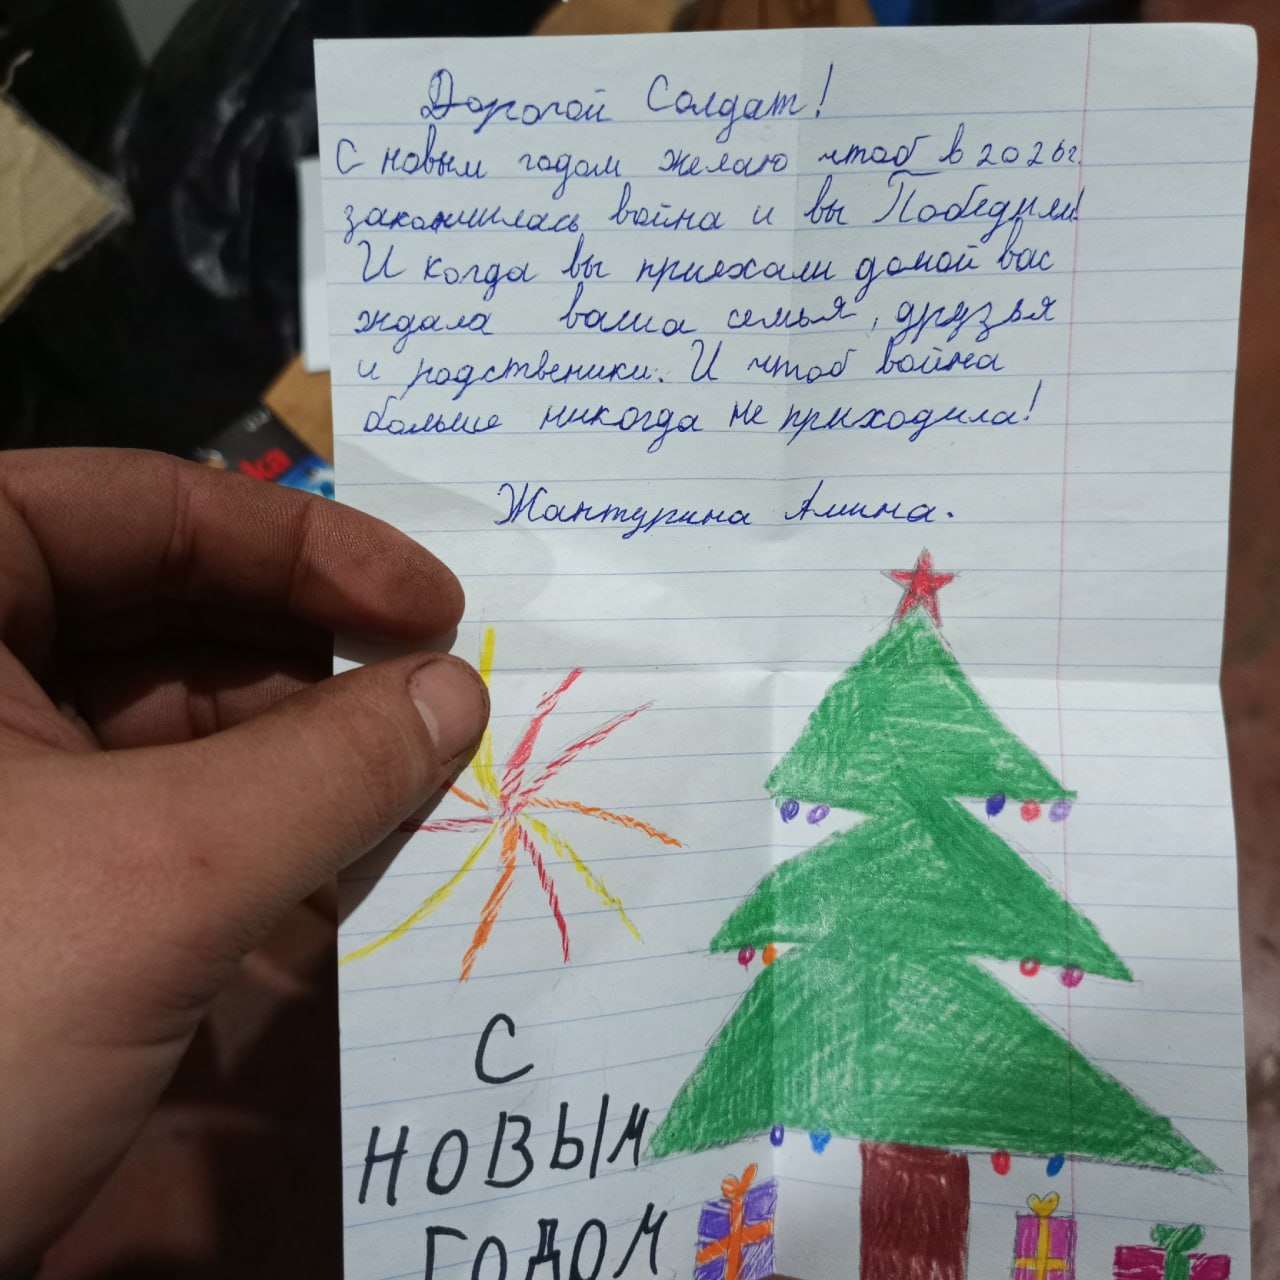 Дорогой Солдат!
С новым годом желаю чтоб в 2026г.
закончилась война и вы Победили!
И когда вы приехали домой вас
ждала ваша семья, друзья
и родственики. И чтоб война
больше никогда не приходила!
Жантурина Амина.
С
НОВЫМ
ГОДОМ